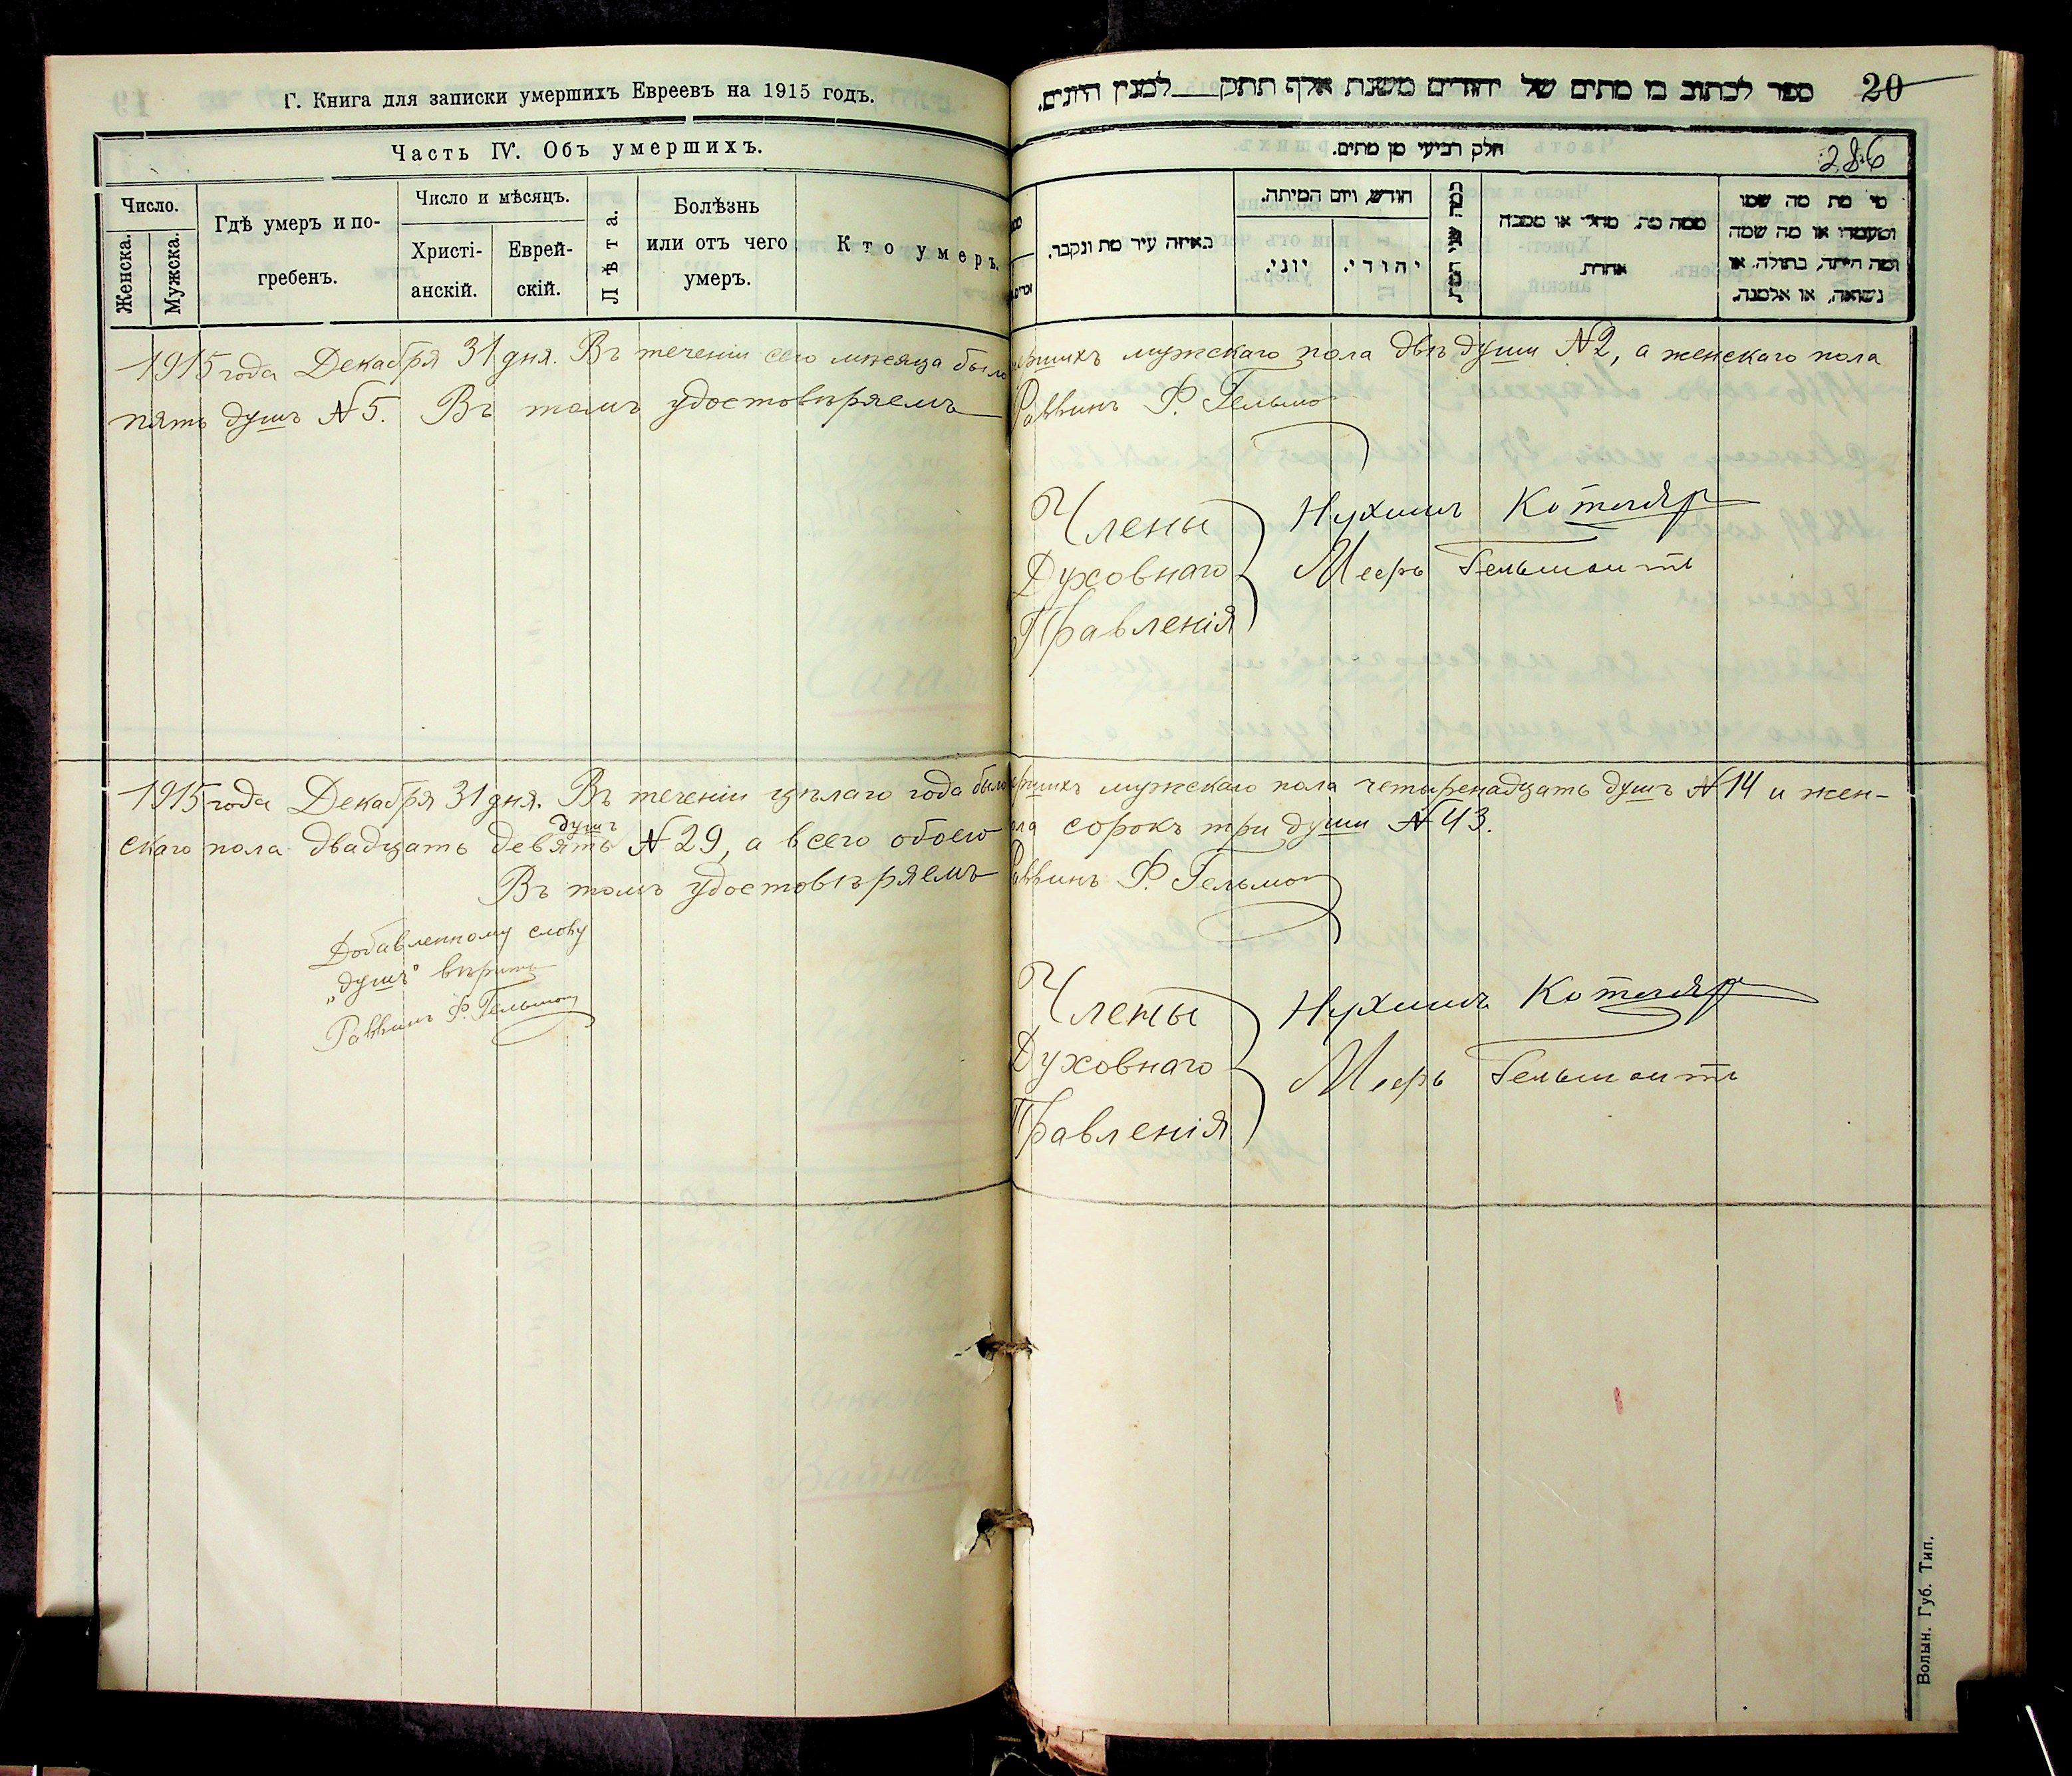 Г. Книга для записки умершихъ Евреевъ на 1915 годъ.
Часть IV. Объ умершихъ.
Число.
Женска.
Мужска.
Гдѣ умеръ и по-
гребенъ.
Число и мѣсяцъ.
Христі-
анскій.
Еврей-
скій.
Лѣта.
Болѣзнь
или отъ чего
умеръ.
Кто умеръ.
ספר לכתוב בו מתים של יהודים משנת אלף תתק למנין היונים.
20
286
חלק רביעי מן מתים.
באיזה עיר מת ונקבר.
חודש, ויום המיתה.
יוני.
יהודי.
ממה מת, מחלי או מסבה
אחרת
מי מת מה שמו
ומעמדו או מה שמה
ומה הייתה, בתולה, או
נשואה, או אלמנה.
1915 года Декабря 31 дня. Въ теченіи сего мѣсяца было ершихъ мужскаго пола двѣ души №2, а женскаго пола
пять душъ №5. Въ томъ удостовѣряемъ Раввинъ Ф. Гельмо
Члены
Духовнаго
Правленія
Нухимъ Котляр
Мееръ
1915 года Декабря 31 дня. Въ теченіи цѣлаго года было ершихъ мужскаго пола четыренадцать душъ №14 и жен-
скаго пола двадцать девять душъ №29, а всего обоего ола сорокъ три души №43.
Въ томъ удостовѣряемъ Раввинъ Ф. Гельмо
Добавленному слову
„душъ" вѣрить
Раввинъ Ф. Гельмо
Члены
Духовнаго
Правленія
Нухимъ Котляр
Мееръ
Волын. Губ. Тип.